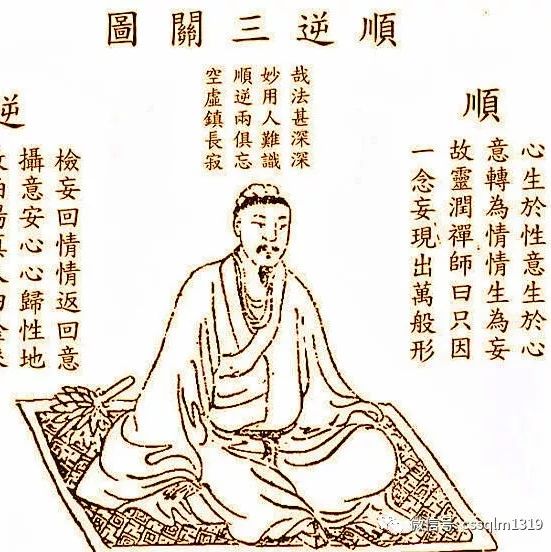 順逆三關圖
哉法甚深深
妙用人難識
順逆兩俱忘
空虛鎮長寂
順
心生於性意生於心
意轉為情情生為妄
故靈潤禪師曰只因
一念妄現出萬般形
逆
檢妄回情情返回意
攝意安心心歸性地
微信号: cssqlm1319